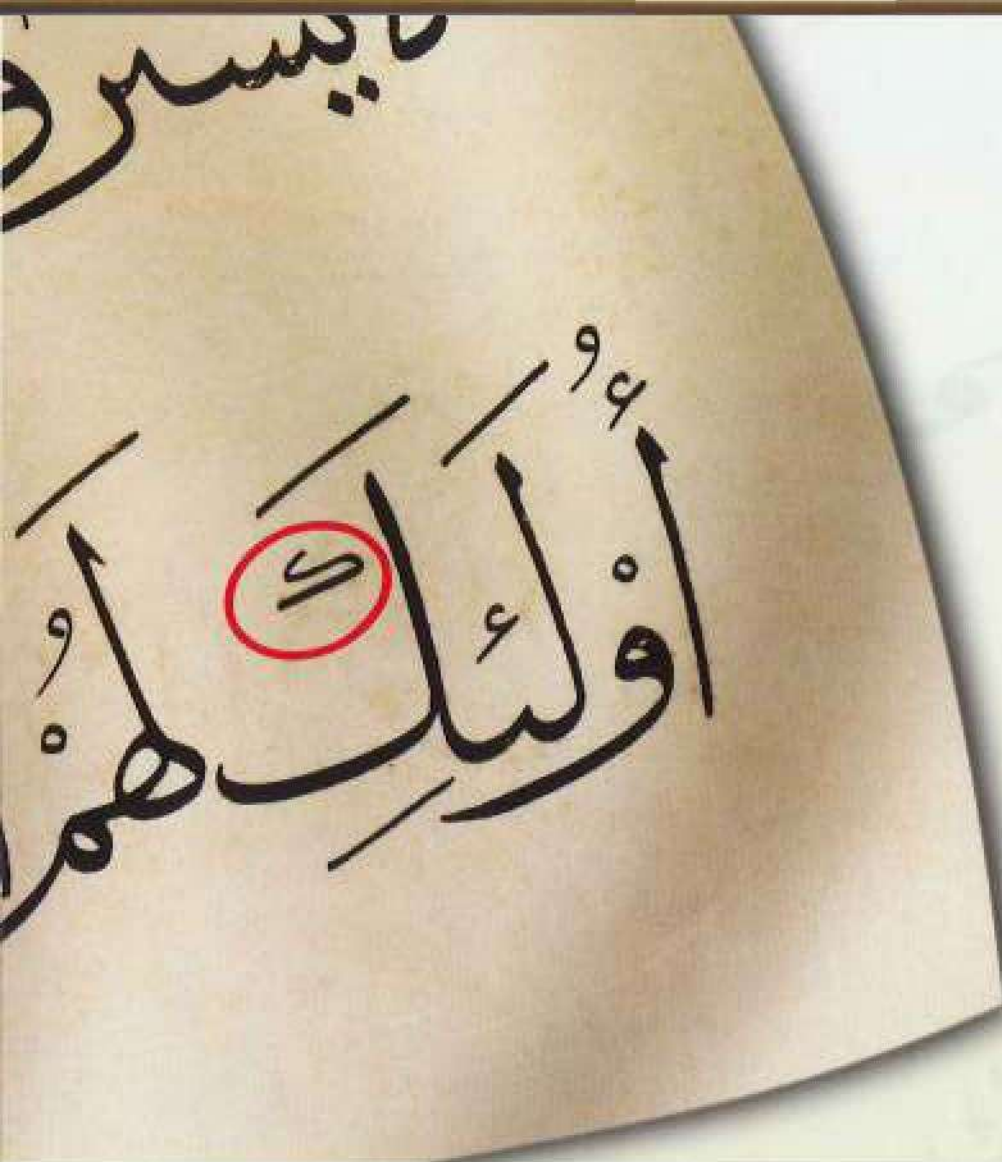 أُوْلَئِكَ لَهُمْ